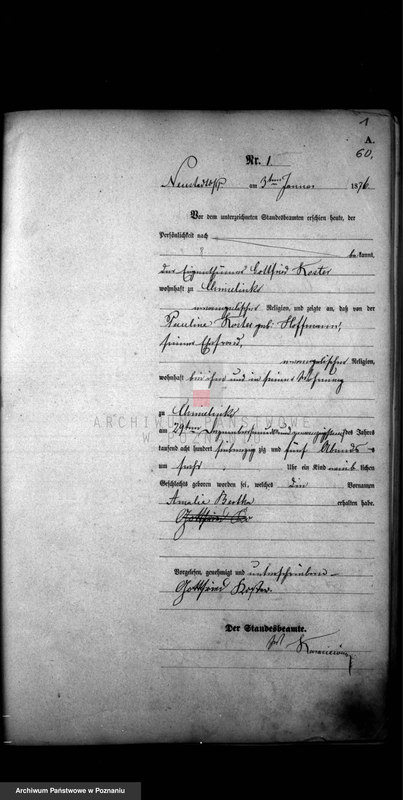 1
A.
60.
Nr. 1
am 3ten Januar 1876
Vor dem unterzeichneten Standesbeamten erschien heute, der
Persönlichkeit nach
bekannt,
der Eigenthümer Gottfried Koster
wohnhaft zu Chmielinke
evangelischer Religion, und zeigte an, daß von der
Pauline Koster geb: Hoffmann,
seiner Ehefrau,
evangelischer Religion,
wohnhaft bei ihm und in seiner Wohnung
ARCHIWUM PAŃSTWOWE
W POZNANIU
zu Chmielinke
am des Jahres
tausend acht hundert siebenzig zig und fünf Abends
um sechs Uhr ein Kind weib lichen
Geschlechts geboren worden sei, welches die Vornamen
Amalie Bertha erhalten habe.
Vorgelesen, genehmigt und unterschrieben
Gottfried Koster.
Der Standesbeamte.
Archiwum Państwowe w Poznaniu